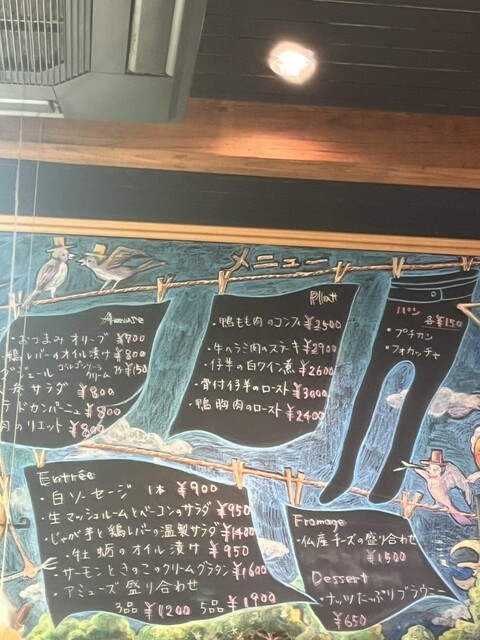 メニュー
Amuse
・おつまみオリーブ ¥700
鶏レバーのオイル漬け ¥800
ゴルゴンゾーラ
クリーム
¥150
サラダ ¥800
¥800
肉のリエット ¥800
Plat
・鴨もも肉のコンフィ ¥2500
・牛ハラミ肉のステーキ ¥2700
・仔羊の白ワイン煮 ¥2600
・骨付仔羊のロースト ¥3000
・鴨胸肉のロースト ¥2400
パン
各¥150
・プチカン
・フォカッチャ
Entrée
・白ソーセージ 1本 ¥900
・生マッシュルームとベーコンのサラダ ¥950
・じゃが芋と鶏レバーの温製サラダ ¥1400
・牡蠣のオイル漬け ¥950
・サーモンときのこのクリームグラタン ¥1600
・アミューズ盛り合わせ
3品 ¥1200 5品 ¥1900
Fromage
・仏産チーズの盛り合わせ
¥1500
Dessert
・ナッツたっぷりブラウニー
¥650